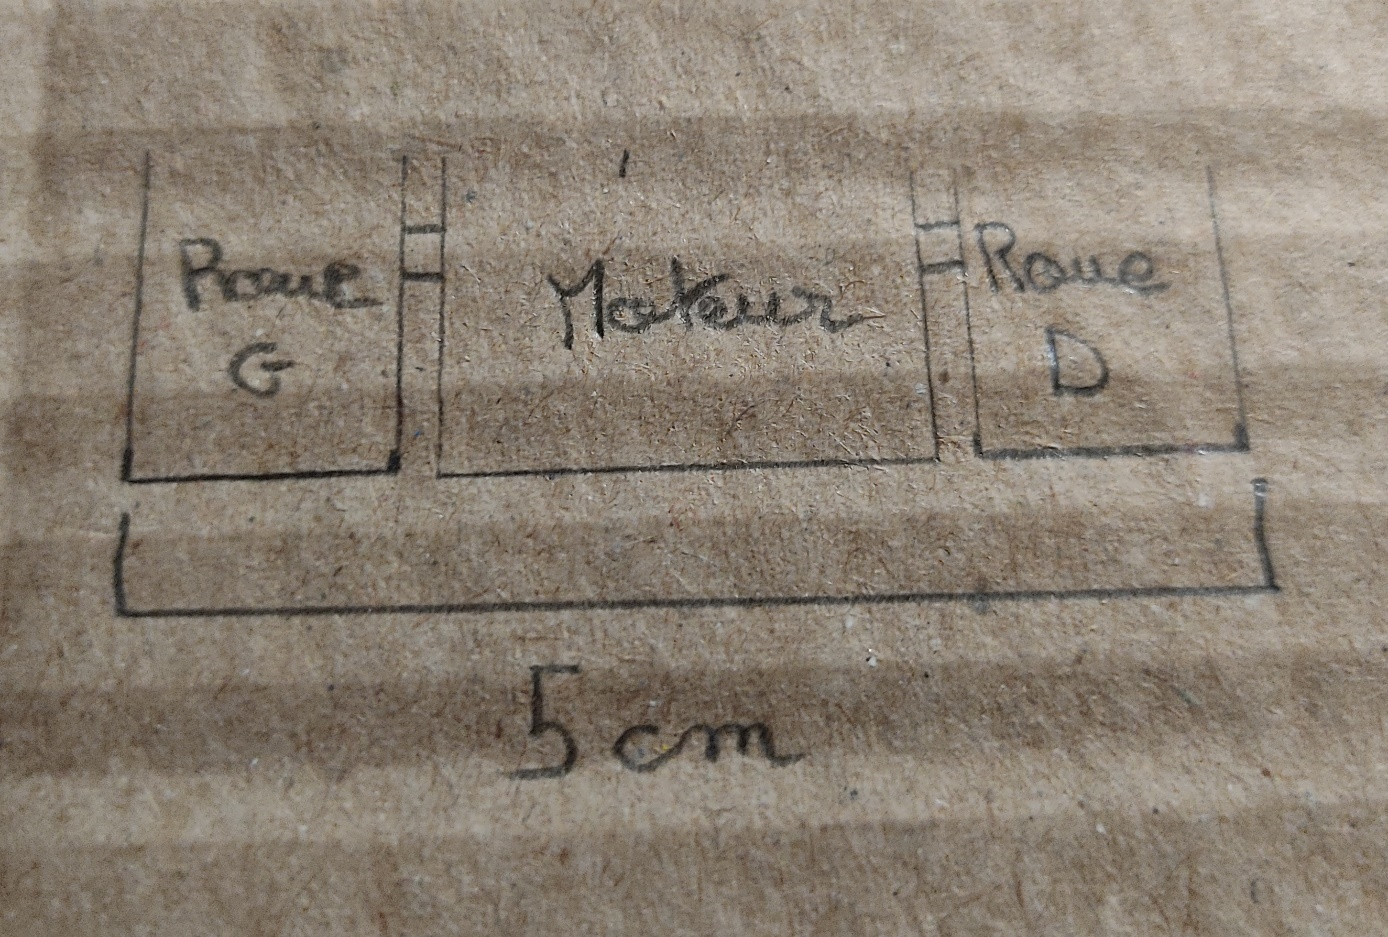 Roue
G
Moteur
Roue
D
5 cm